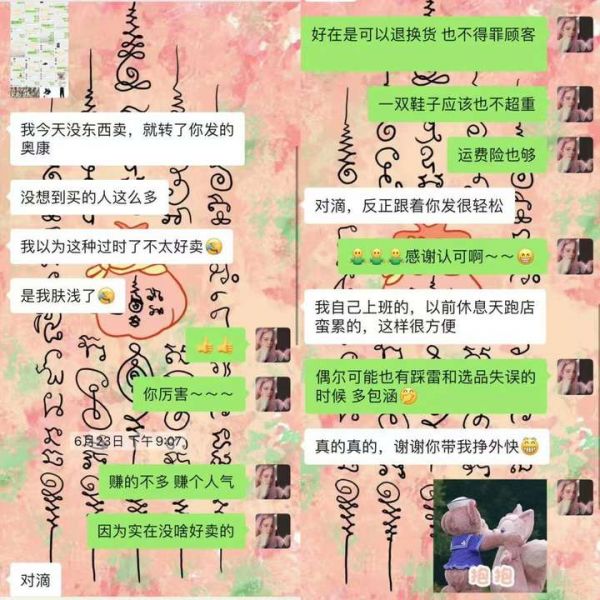 我今天没东西卖，就转了你发的
奥康
没想到买的人这么多
我以为这种过时了不太好卖
是我肤浅了
你厉害～～～～
6月23日 下午9:07
赚的不多 赚个人气
因为实在没啥好卖的
对滴
好在是可以退换货 也不得罪顾客
一双鞋子应该也不超重
运费险也够
对滴，反正跟着你发很轻松
感谢认可啊～～
我自己上班的，以前休息天跑店
蛮累的，这样很方便
偶尔可能也有踩雷和选品失误的
时候 多包涵
真的真的，谢谢你带我挣外快
抱抱